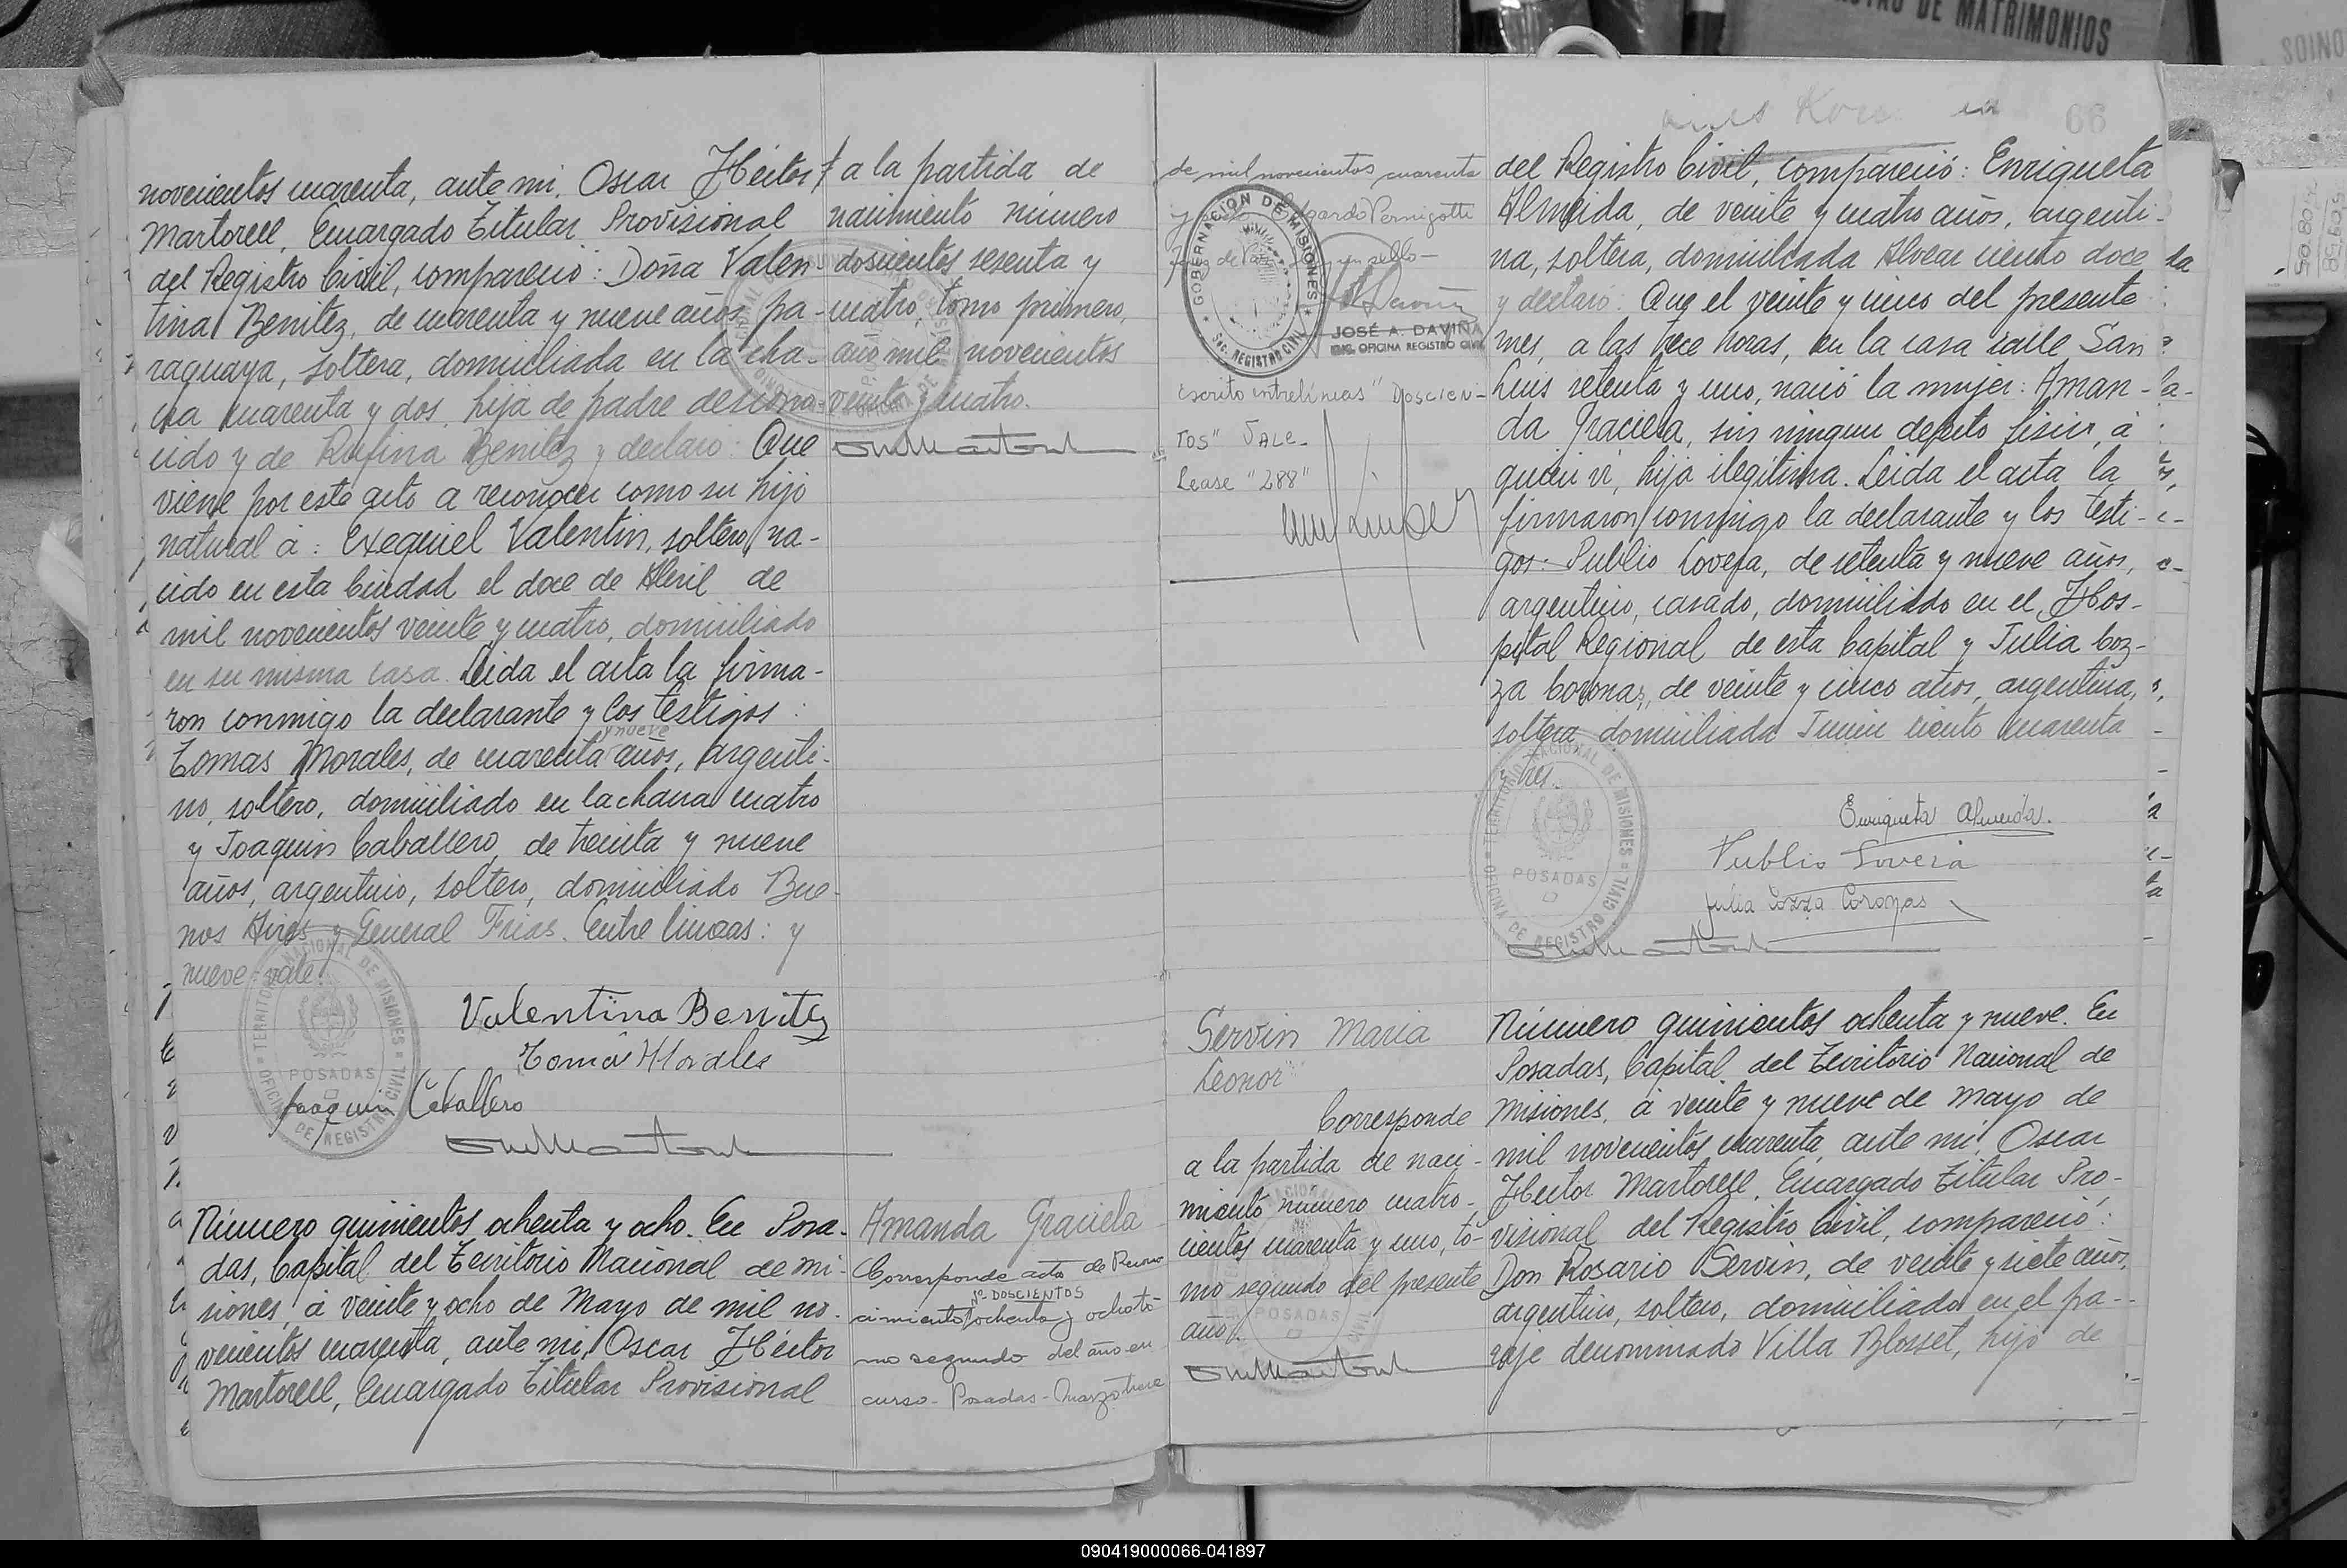 novecientos cuarenta, ante mi, Oscar Héctor
Martorell, Encargado Titular Provisional
del Registro Civil, compareció: Doña Valen-
tina Benitez, de cuarenta y nueve años, pa-
raguaya, soltera, domiciliada en la cha-
cra cuarenta y dos, hija de padre descono-
cido y de Rufina Benitez y declaró: Que
viene por este acto a reconocer como su hijo
natural á: Exequiel Valentin, soltero, na-
cido en esta Ciudad el doce de Abril de
mil novecientos veinte y cuatro, domiciliado
en su misma casa. Leida el acta la firma-
ron conmigo la declarante y los testigos:
y nueve
Tomas Morales, de cuarenta años, argenti-
no, soltero, domiciliado en la chacra cuatro
y Joaquin Caballero, de treinta y nueve
años, argentino, soltero, domiciliado Bue-
nos Aires y General Frias. Entre lineas: y
nueve-vale.
TERRITORIO NACIONAL DE MISIONES
POSADAS
OFICINA DE REGISTRO CIVIL
Valentina Benitez
Tomás Morales
Joaquin Caballero
Número quinientos ochenta y ocho. En Posa-
das, Capital del Territorio Nacional de Mi-
siones, á veinte y ocho de Mayo de mil no-
vecientos cuarenta, ante mi, Oscar Héctor
Martorell, Encargado Titular Provisional
a la partida de
nacimiento número
doscientos sesenta y
cuatro, tomo primero,
año mil novecientos
veinte y cuatro.
Amanda Graciela
Corresponde acta de Recono
Nº DOSCIENTOS
cimiento ochenta y ocho to-
mo segundo del año en
curso - Posadas - Marzo trece
de mil novecientos cuarenta
Pernigotti
un sello-
GOBERNACION DE MISIONES
Sec. REGISTRO CIVIL
JOSÉ A. DAVIÑA
ENC. OFICINA REGISTRO CIVIL
Escrito entrelíneas "Doscien-
tos" Vale-
Lease "288"
Servin Maria
Leonor
Corresponde
a la partida de naci-
miento número cuatro-
cientos cuarenta y uno, to-
mo segundo del presente
año.
66
del Registro Civil, compareció: Enriqueta
Almeida, de veinte y cuatro años, argenti-
na, soltera, domiciliada Alvear ciento doce
y declaró: Que el veinte y cinco del presente
mes, a las trece horas, en la casa calle San
Luis setenta y uno, nació la mujer: Aman-
da Graciela, sin ningun defecto fisico, á
quien vi, hija ilegitima. Leida el acta la
firmaron conmigo la declarante y los testi-
gos: Publio Lovera, de setenta y nueve años,
argentino, casado, domiciliado en el Hos-
pital Regional de esta Capital y Julia Coz-
za Coronas, de veinte y cinco años, argentina,
soltera, domiciliada Junin ciento cuarenta
y tres.
TERRITORIO NACIONAL DE MISIONES
POSADAS
OFICINA DE REGISTRO CIVIL
Enriqueta Almeida.
Publio Lovera
Julia Cozza Coronas
Número quinientos ochenta y nueve. En
Posadas, Capital del Territorio Nacional de
Misiones, á veinte y nueve de Mayo de
mil novecientos cuarenta, ante mi, Oscar
Héctor Martorell, Encargado Titular Pro-
visional del Registro Civil, compareció:
Don Rosario Servin, de veinte y siete años,
argentino, soltero, domiciliado en el pa-
raje denominado Villa Blosset, hijo de
DE MATRIMONIOS
090419000066-041897